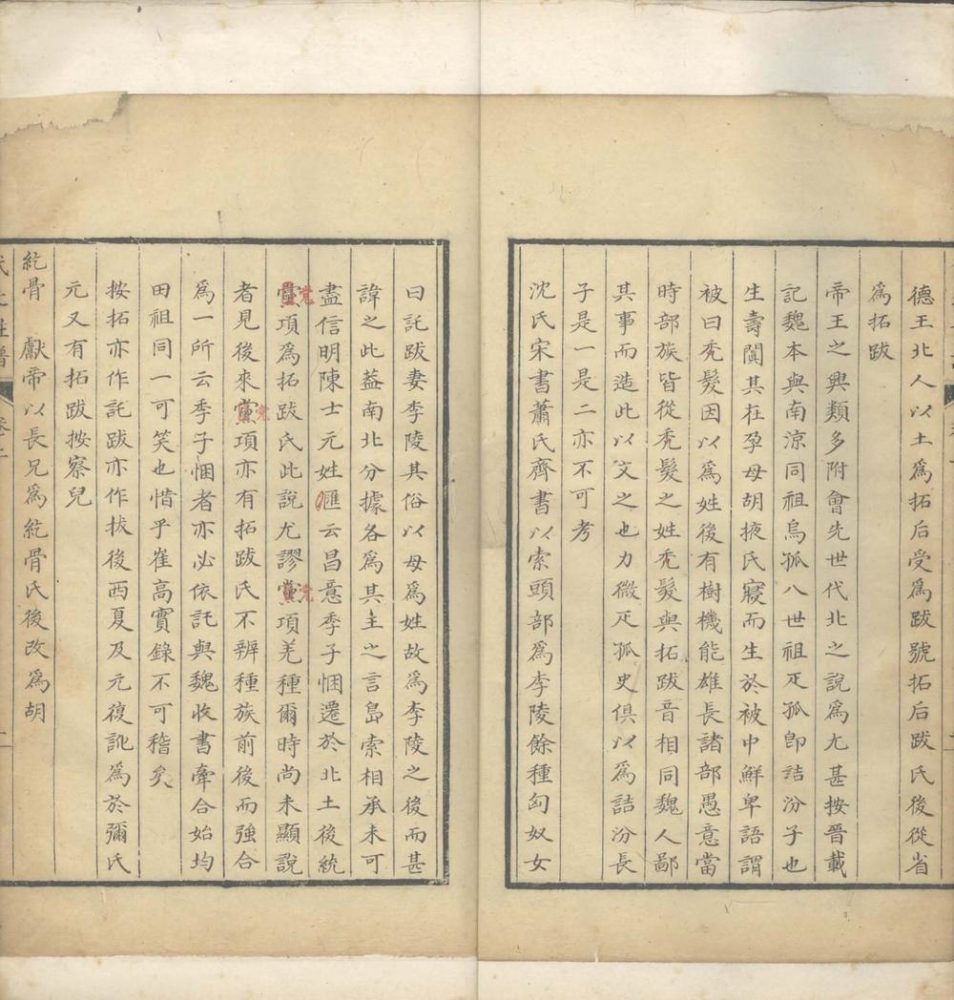 德王北人以土爲拓后受爲跋號拓后跋氏後從省
爲拓跋
帝王之興類多附會先世代北之說爲尤甚按晉載
記魏本與南涼同祖烏孤八世祖疋孤卽詰汾子也
生壽闐其在孕母胡掖氏寢而生於被中鮮卑語謂
被曰禿髮因以爲姓後有樹機能雄長諸部愚意當
時部族皆從禿髮之姓禿髮與拓跋音相同魏人鄙
其事而造此以文之也力微疋孤史俱以爲詰汾長
子是一是二亦不可考
沈氏宋書蕭氏齊書以索頭部爲李陵餘種匈奴女
曰託跋妻李陵其俗以母爲姓故爲李陵之後而甚
諱之此蓋南北分據各爲其主之言島索相承未可
盡信明陳士元姓匯云昌意季子悃遷於北土後統
党項爲拓跋氏此說尤謬党項羌種爾時尚未顯說
者見後來党項亦有拓跋氏不辨種族前後而強合
爲一所云季子悃者亦必依託與魏收書牽合始均
田祖同一可笑也惜乎崔高實錄不可稽矣
按拓亦作託跋亦作拔後西夏及元復訛爲於彌氏
元又有拓跋按察兒
紇骨　獻帝以長兄爲紇骨氏後改爲胡